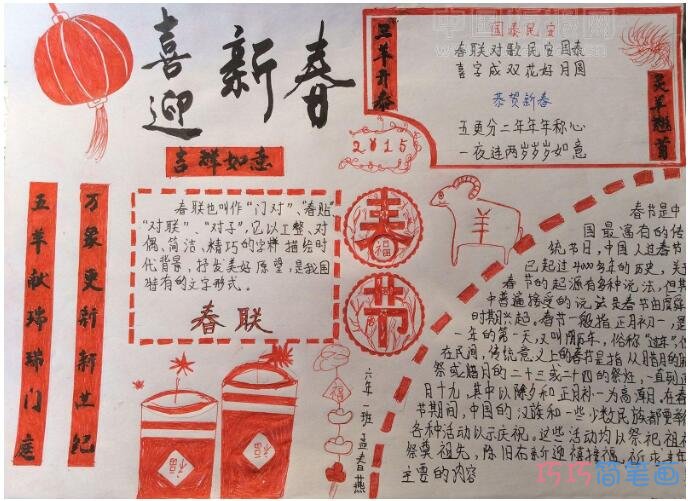 喜迎新春
吉祥如意
三羊开泰
国泰民安
春联对歌民安国泰
喜字成双花好月圆
恭贺新春
五更分二年年年称心
一夜连两岁岁岁如意
灵羊翘首
2015
万象更新新世纪
五羊献瑞瑞门庭
春联也叫作“门对”、“春贴”
“对联”、“对子”，它以工整、对
偶、简洁、精巧的字样描绘时
代背景，抒发美好愿望，是我国
特有的文字形式。
春联
春
福
节
羊
福
福
福
六年一班 孟春燕
春节是中
国最遍有的传
统节日，中国人过春节
已起过4000多年的历史，关于
春节的起源有多种说法，但其
中普遍接受的说法是春节由虞舜
时期兴起。春节一般指正月初一，是
一年的第一天，又叫阴历年，俗称“过年”，但
在民间，传统意义上的春节是指从腊月的腊
祭或腊月的二十三或二十四的祭灶，一直到正
月十九，其中以除夕和正月初一为高潮日，在春
节期间，中国的汉族和一些少数民族都要举
各种活动以示庆祝。这些活动均以祭祀祖
祭奠祖先，除旧布新迎禧接福，祈求丰年
主要的内容
巧巧简笔画